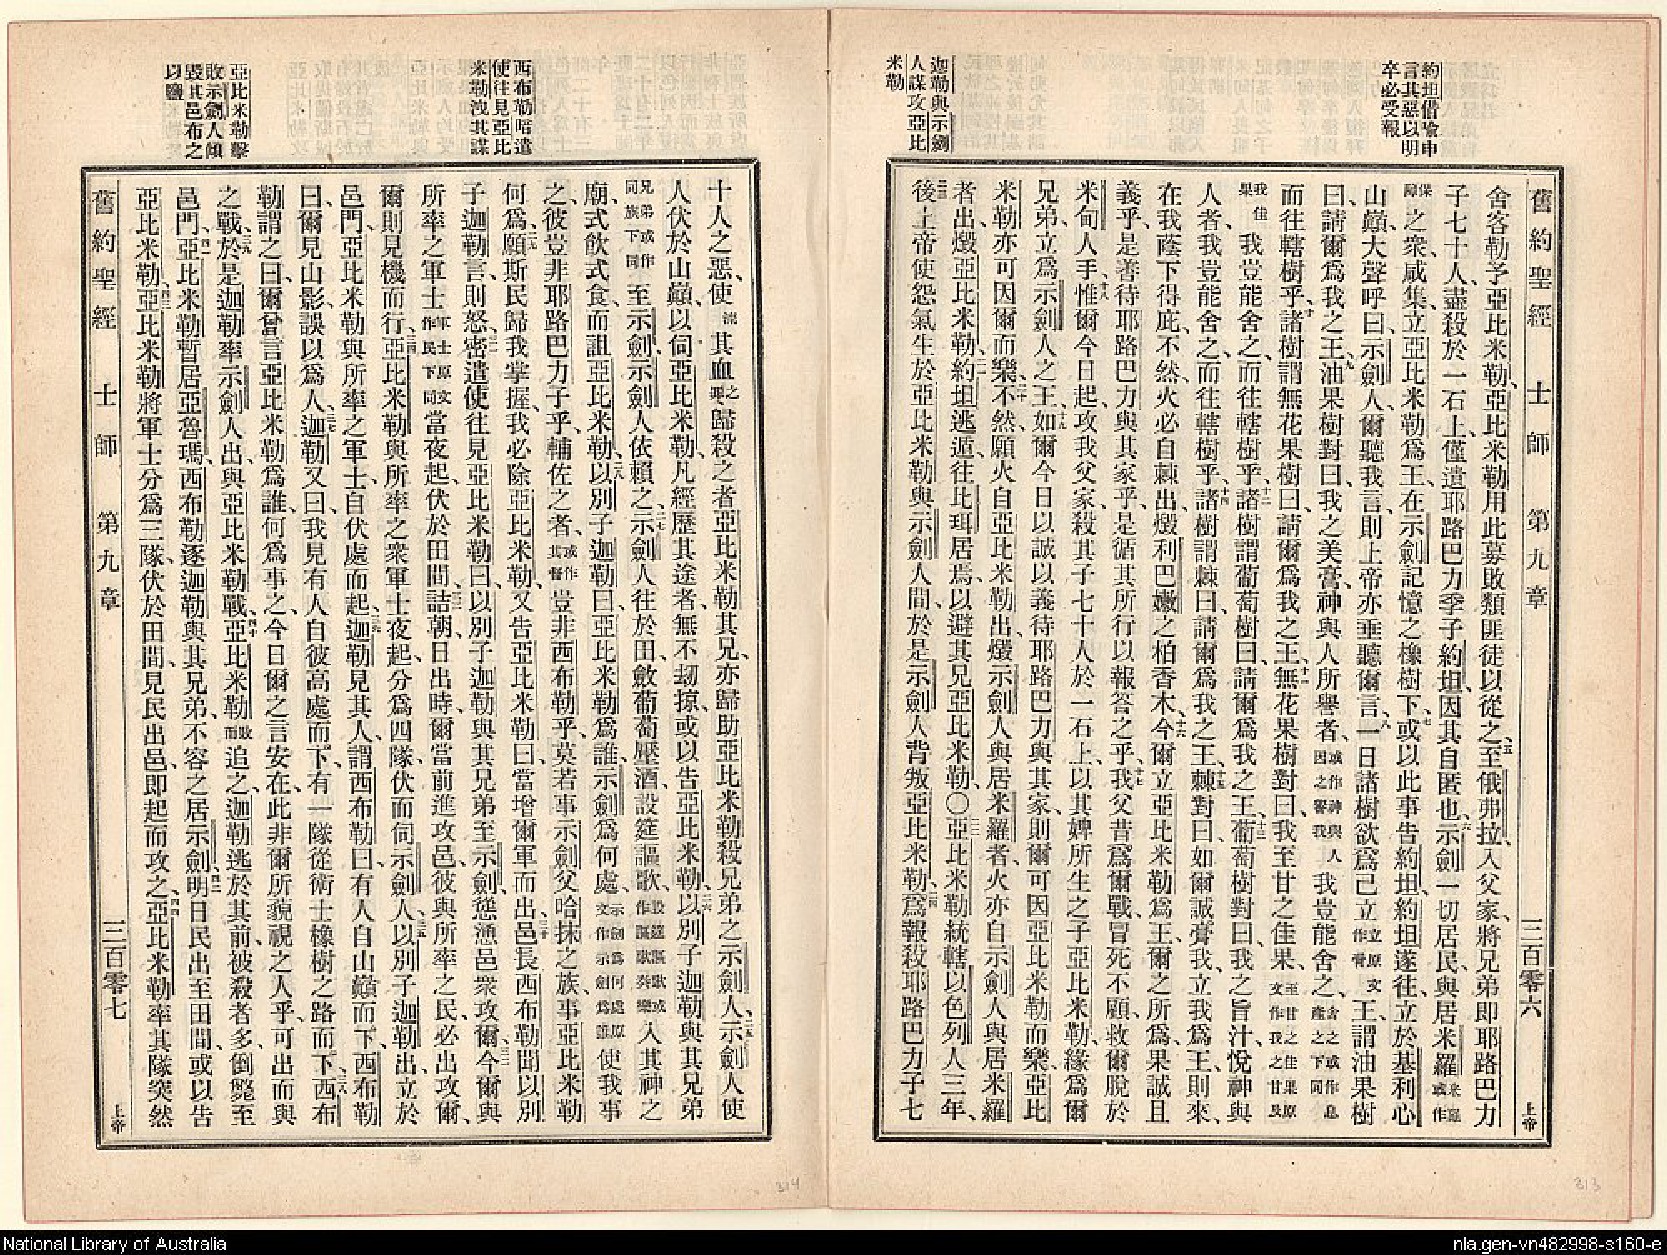 約坦借喻申
言其惡以明
卒必受報
迦勒與示劍
人謀攻亞比
米勒
舊約聖經 士師 第九章 三百零六 上帝
舍客勒予亞比米勒亞比米勒用此募敗類匪徒以從之五至俄弗拉入父家將兄弟卽耶路巴力
子七十人盡殺於一石上僅遺耶路巴力季子約坦因其自匿也六示劍一切居民與居米羅
之衆咸集立亞比米勒爲王在示劍記憶之橡樹下七或以此事吿約坦約坦遂往立於基利心
山巔大聲呼曰示劍人爾聽我言則上帝亦垂聽爾言八一日諸樹欲爲己立王謂油果樹
曰請爾爲我之王九油果樹對曰我之美膏神與人所譽者我豈能舍之
而往轄樹乎十諸樹謂無花果樹曰請爾爲我之王十一無花果樹對曰我至甘之佳果
我豈能舍之而往轄樹乎十二諸樹謂葡萄樹曰請爾爲我之王十三葡萄樹對曰我之旨汁悅神與
人者我豈能舍之而往轄樹乎十四諸樹謂棘曰請爾爲我之王十五棘對曰如爾誠膏我立我爲王則來
在我蔭下得庇不然火必自棘出燬利巴嫩之柏香木十六今爾立亞比米勒爲王爾之所爲果誠且
義乎是善待耶路巴力與其家乎是循其所行以報答之乎十七我父昔爲爾戰冒死不顧救爾脫於
米甸人手十八惟爾今日起攻我父家殺其子七十人於一石上以其婢所生之子亞比米勒緣爲爾
兄弟立爲示劍人之王十九如爾今日以誠以義待耶路巴力與其家則爾可因亞比米勒而樂亞比
米勒亦可因爾而樂二十不然願火自亞比米勒出燬示劍人與居米羅者火亦自示劍人與居米羅
者出燬亞比米勒二一約坦逃遁往比珥居焉以避其兄亞比米勒〇二二亞比米勒統轄以色列人三年
二三後上帝使怨氣生於亞比米勒與示劍人間於是示劍人背叛亞比米勒二四爲報殺耶路巴力子七
西布勒暗遣
使往見亞比
米勒洩其謀
亞比米勒擊
敗示劍人傾
毀其邑布之
以鹽
十人之惡使其血歸殺之者亞比米勒其兄亦歸助亞比米勒殺兄弟之示劍人二五示劍人使
人伏於山巔以伺亞比米勒凡經歷其途者無不刧掠或以吿亞比米勒二六以別子迦勒與其兄弟
至示劍示劍人依賴之二七示劍人往於田斂葡萄壓酒設筵謳歌入其神之
廟式飮式食而詛亞比米勒二八以別子迦勒曰亞比米勒爲誰示劍爲何處使我事
之彼豈非耶路巴力子乎輔佐之者豈非西布勒乎莫若事示劍父哈抹之族事亞比米勒
何爲二九願斯民歸我掌握我必除亞比米勒又吿亞比米勒曰當增爾軍而出三十邑長西布勒聞以別
子迦勒言則怒三一密遣使往見亞比米勒曰以別子迦勒與其兄弟至示劍慫慂邑衆攻爾三二今爾與
所率之軍士當夜起伏於田間三三詰朝日出時爾當前進攻邑彼與所率之民必出攻爾
爾則見機而行三四亞比米勒與所率之衆軍士夜起分爲四隊伏而伺示劍人三五以別子迦勒出立於
邑門亞比米勒與所率之軍士自伏處而起三六迦勒見其人謂西布勒曰有人自山巔而下西布勒
曰爾見山影誤以爲人三七迦勒又曰我見有人自彼高處而下有一隊從術士橡樹之路而下三八西布
勒謂之曰爾曾言亞比米勒爲誰何爲事之今日爾之言安在此非爾所藐視之人乎可出而與
之戰三九於是迦勒率示劍人出與亞比米勒戰四十亞比米勒追之迦勒逃於其前被殺者多倒斃至
邑門四一亞比米勒暫居亞魯瑪西布勒逐迦勒與其兄弟不容之居示劍四二明日民出至田間或以吿
亞比米勒四三亞比米勒將軍士分爲三隊伏於田間見民出邑卽起而攻之四四亞比米勒率其隊突然
舊約聖經 士師 第九章 三百零七 上帝
314
313
National Library of Australia
nla.gen-vn482998-s160-e